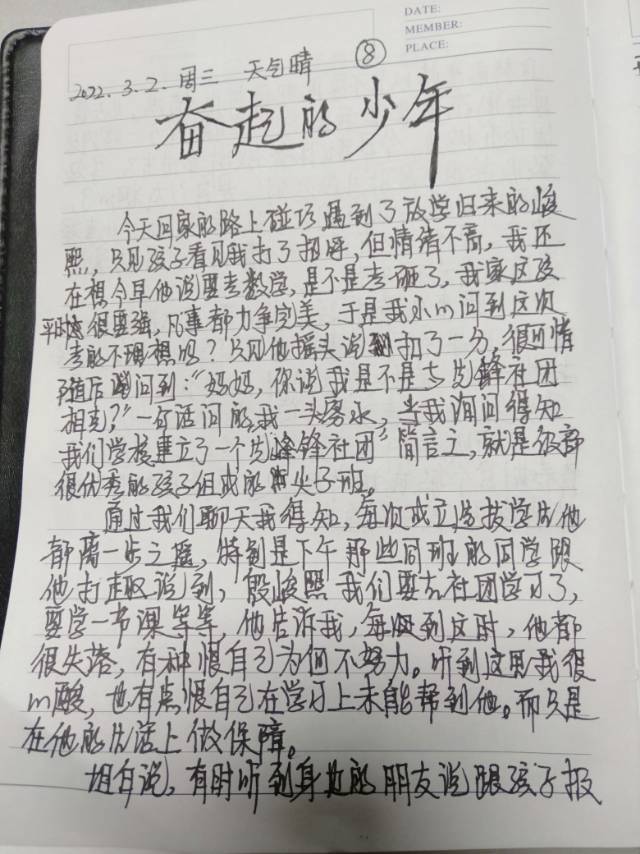 DATE:
MEMBER:
PLACE:
⑧
2022.3.2.周三 天气晴
奋起的少年
今天回家的路上碰巧遇到了放学归来的峻
熙,只见孩子看见我打了招呼,但情绪不高,我还
在想今早他说要考数学,是不是考砸了,我家这孩
平时很要强,凡事都力争完美,于是我小心问到这次
考的不理想吗?只见他摇头说扣了一分,很可惜
随后问到:“妈妈,你说我是不是与先锋社团
相克?”一句话问的我一头雾水,当我询问得知
我们学校建立了一个先锋社团,简言之,就是级部
很优秀的孩子组成的尖子班。
通过我们聊天我得知,每次成立选拔学生他
都离一步之遥,特别是下午那些同班的同学跟
他打趣说到,殷峻熙我们要去社团学习了,
要学一节课等等,他告诉我,每次到这时,他都
很失落,有种恨自己为何不努力。听到这里我很
心酸,也有点恨自己在学习上未能帮到他。而只是
在他的生活上做保障。
坦白说,有时听到身边的朋友说跟孩子报